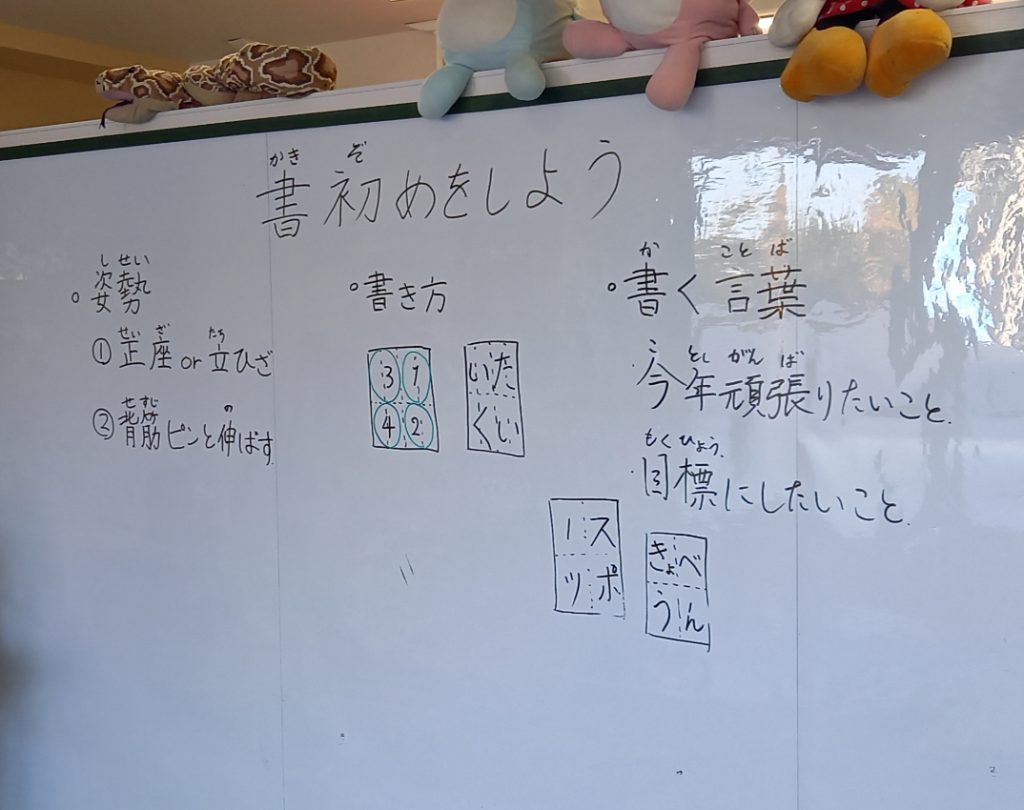 かき ぞ
書初めをしよう
しせい
。姿勢
せい ざ たち
①正座or立ひざ
せすじ の
②背筋ピンと伸ばす
。書き方
1 2
3 4
たい
いく
か ことば
。書く言葉
こ とし がん ば
・今年頑張りたいこと.
もくひょう
・目標にしたいこと.
スポ
ーツ
べん
きょう